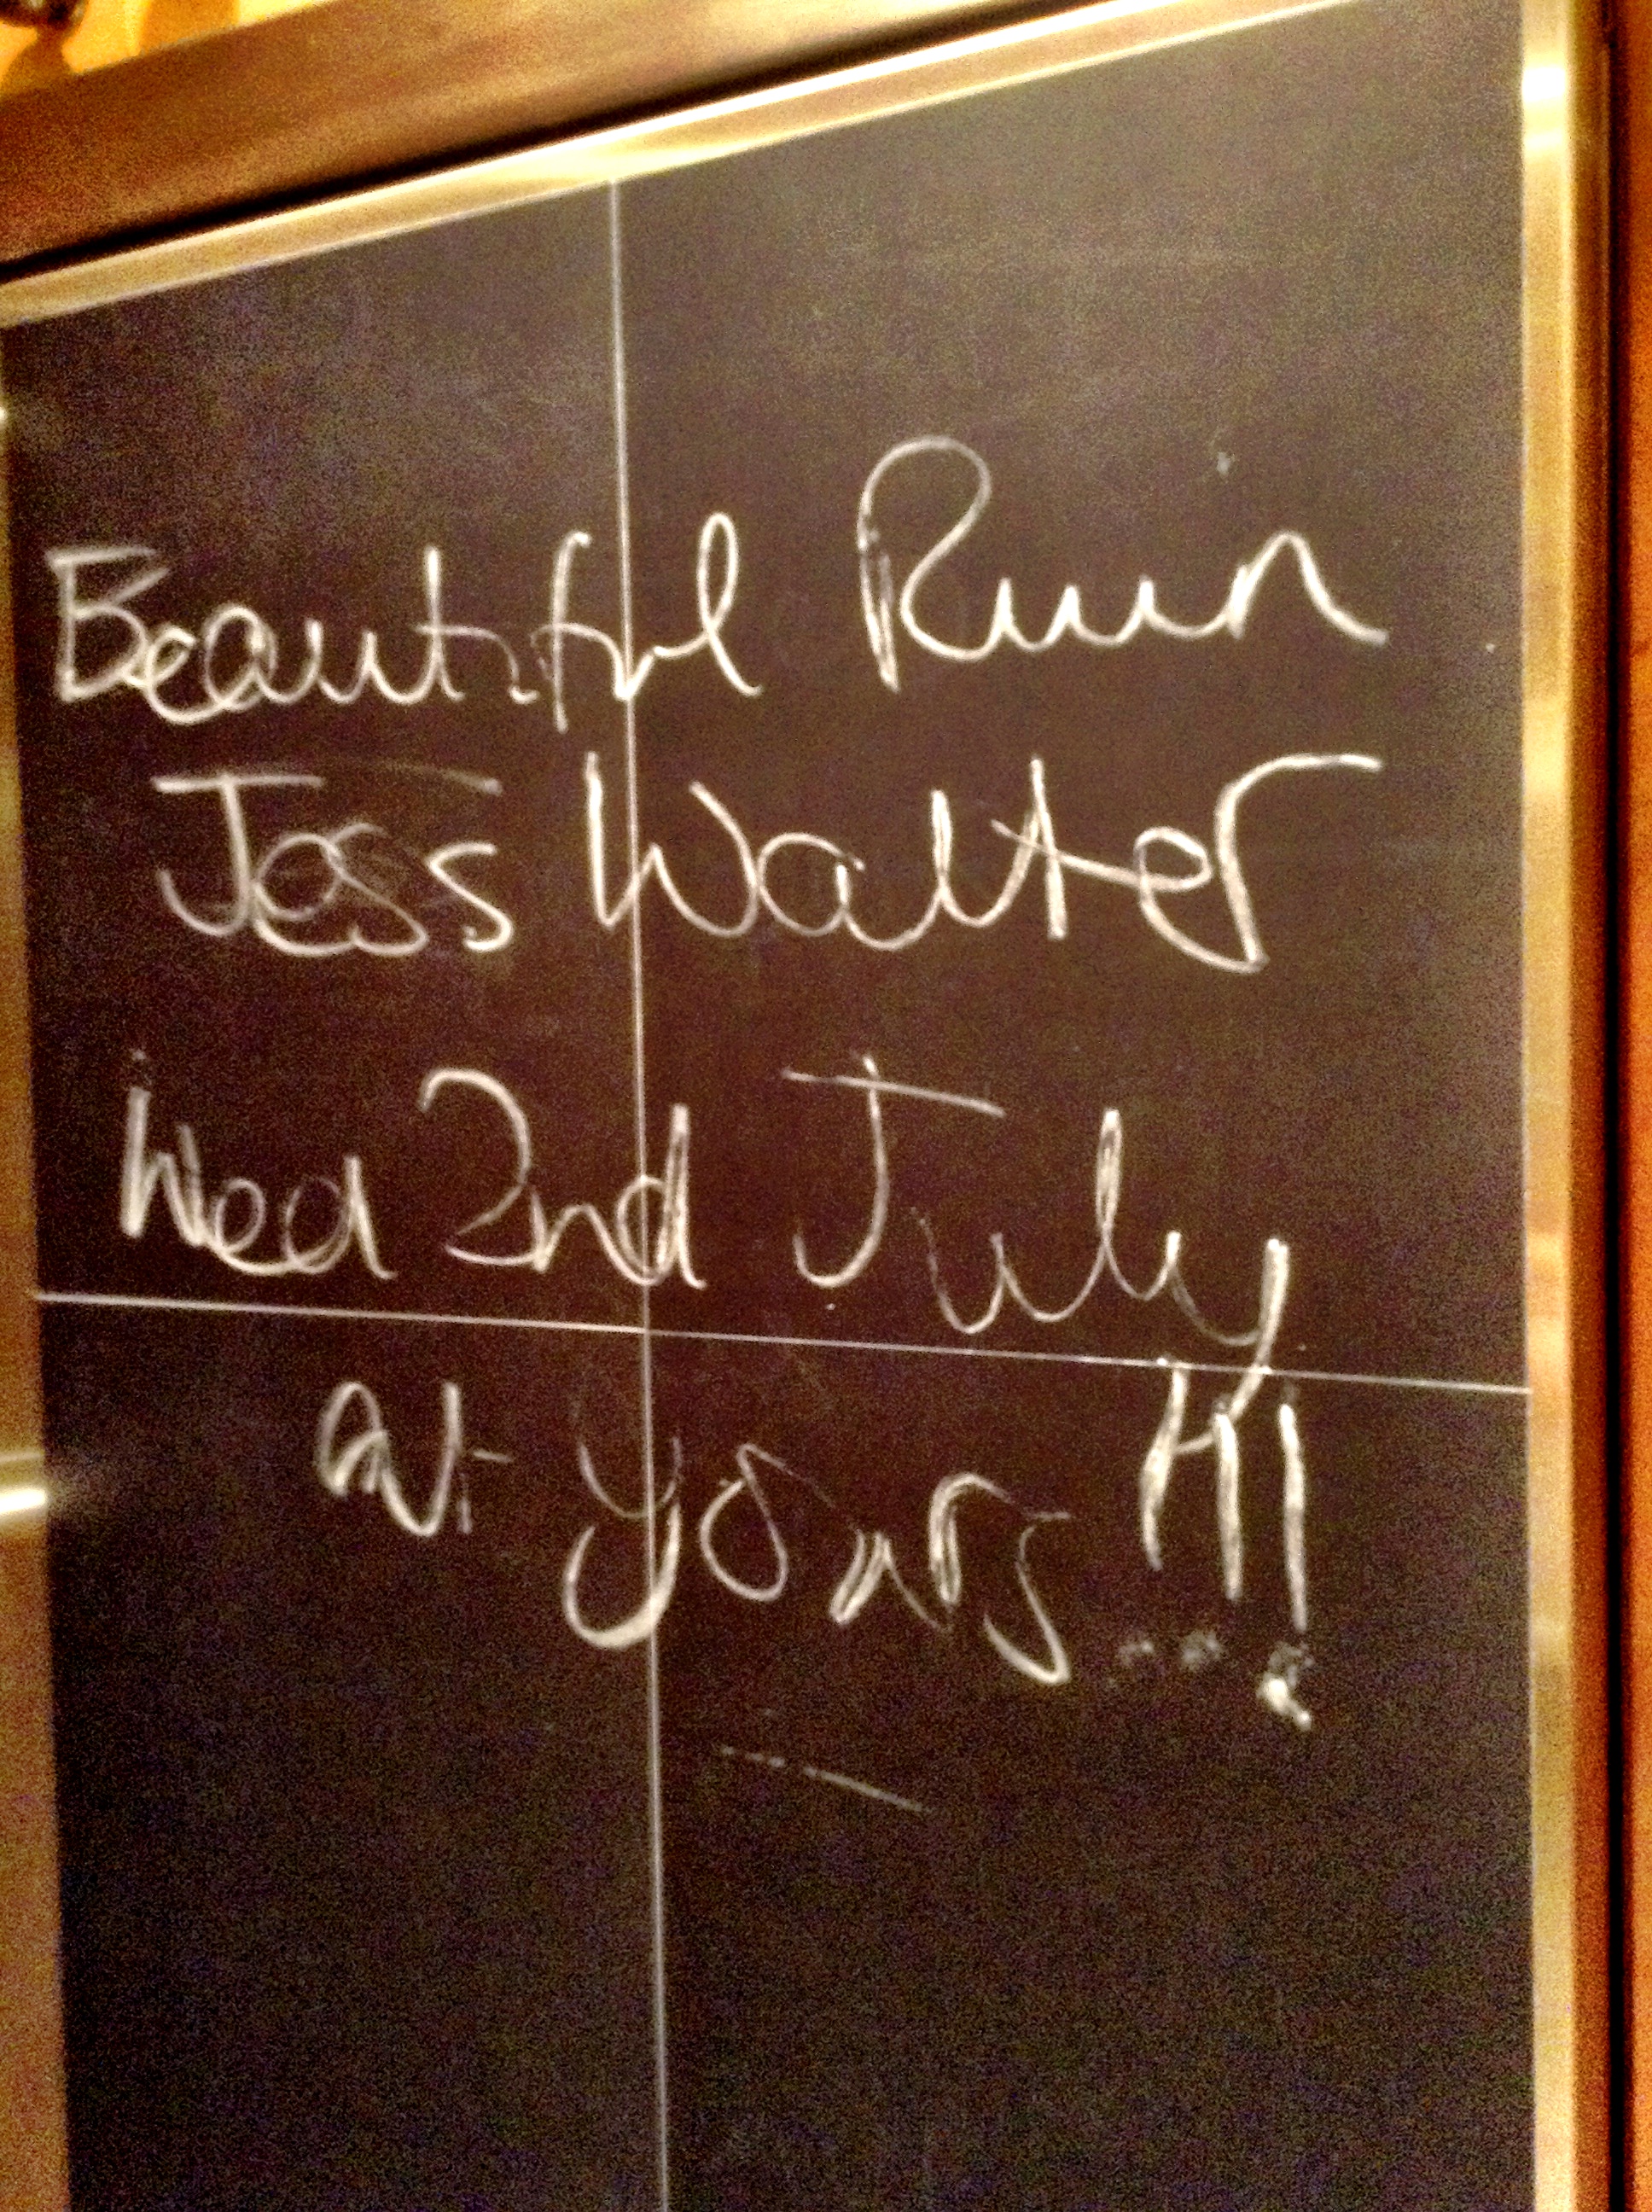 Beautiful Ruin
Jess Walter
Wed 2nd July
at yours!!!